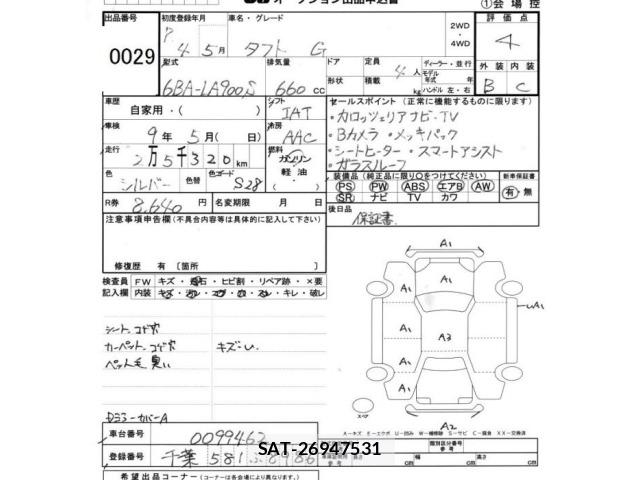 オークション出品申込書
①会場控
出品番号 0029
初度登録年月 4年5月
車名・グレード タフト G
2WD・4WD
評価点 4
型式 6BA-LA900S
排気量 660 cc
ドア 形状
定員 4人
積載 kg
ディーラー・並行
モデル年式 年
ハンドル 左・右
外装 B
内装 C
車歴 自家用・( )
シフト IAT
車検 9年5月( 日)
冷房 AAC
走行 2万5千320km
燃料 ガソリン 軽油 ( )
色 シルバー
色替
色コード S28
R券 8,640円
名変期限 月 日
セールスポイント(正常に機能するものに限ります)
・カロッツェリアナビ・TV
・Bカメラ・メッキパック
・シートヒーター・スマートアシスト
・ガラスルーフ
装備品(純正品に限り○をつけてください)
PS PW ABS エアB AW
SR ナビ TV カワ
新車保証書 有・無
後日品 保証書
注意事項申告欄(不具合内容等は具体的に記入して下さい)
修復歴 有 〔箇所 〕
検査員記入欄
FW キズ・飛石・ヒビ割・リペア跡・×要
内装 キズ・汚レ・コゲ・穴・スレ・キレ・破レ
シート、コゲ穴
カーペット、コゲ穴
キズ・レ
ペット毛 臭い
A1
A1
A1
A1
A1
A1
A1
A3
A1
A1
A2
スペア
A-キズ E-エクボ U-凹み W-補修跡 S-サビ C-腐食 XX-交換済
車台番号 0099462
登録番号 千葉 581
類別区分番号
参考
長さ cm 幅 cm 高さ cm
SAT-26947531
希望出品コーナー